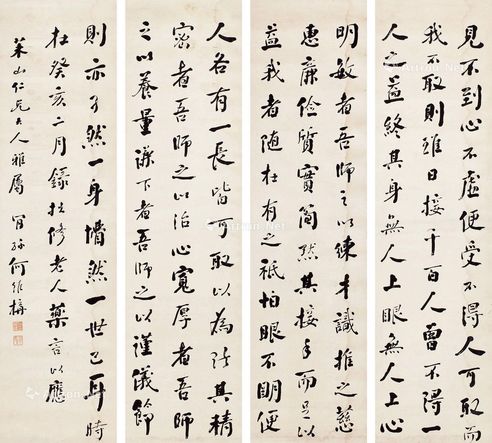 見不到心不虛便受不得人可取而
我不取則雖日接千百人曾不得一
人之益終其身無人上眼無人上心
明敏者吾師之以練才識推之慈
惠廉儉質實簡默其接手而足以
益我者隨在有之祇怕眼不明便
人各有一長皆可取以為法其精
密者吾師之以治心寬厚者吾師
之以養量謙下者吾師之以謹儀節
則亦孑然一身懵然一世已耳時
在癸亥二月錄拙修老人藥言以應
萊山仁兄大人雅屬 孫何維